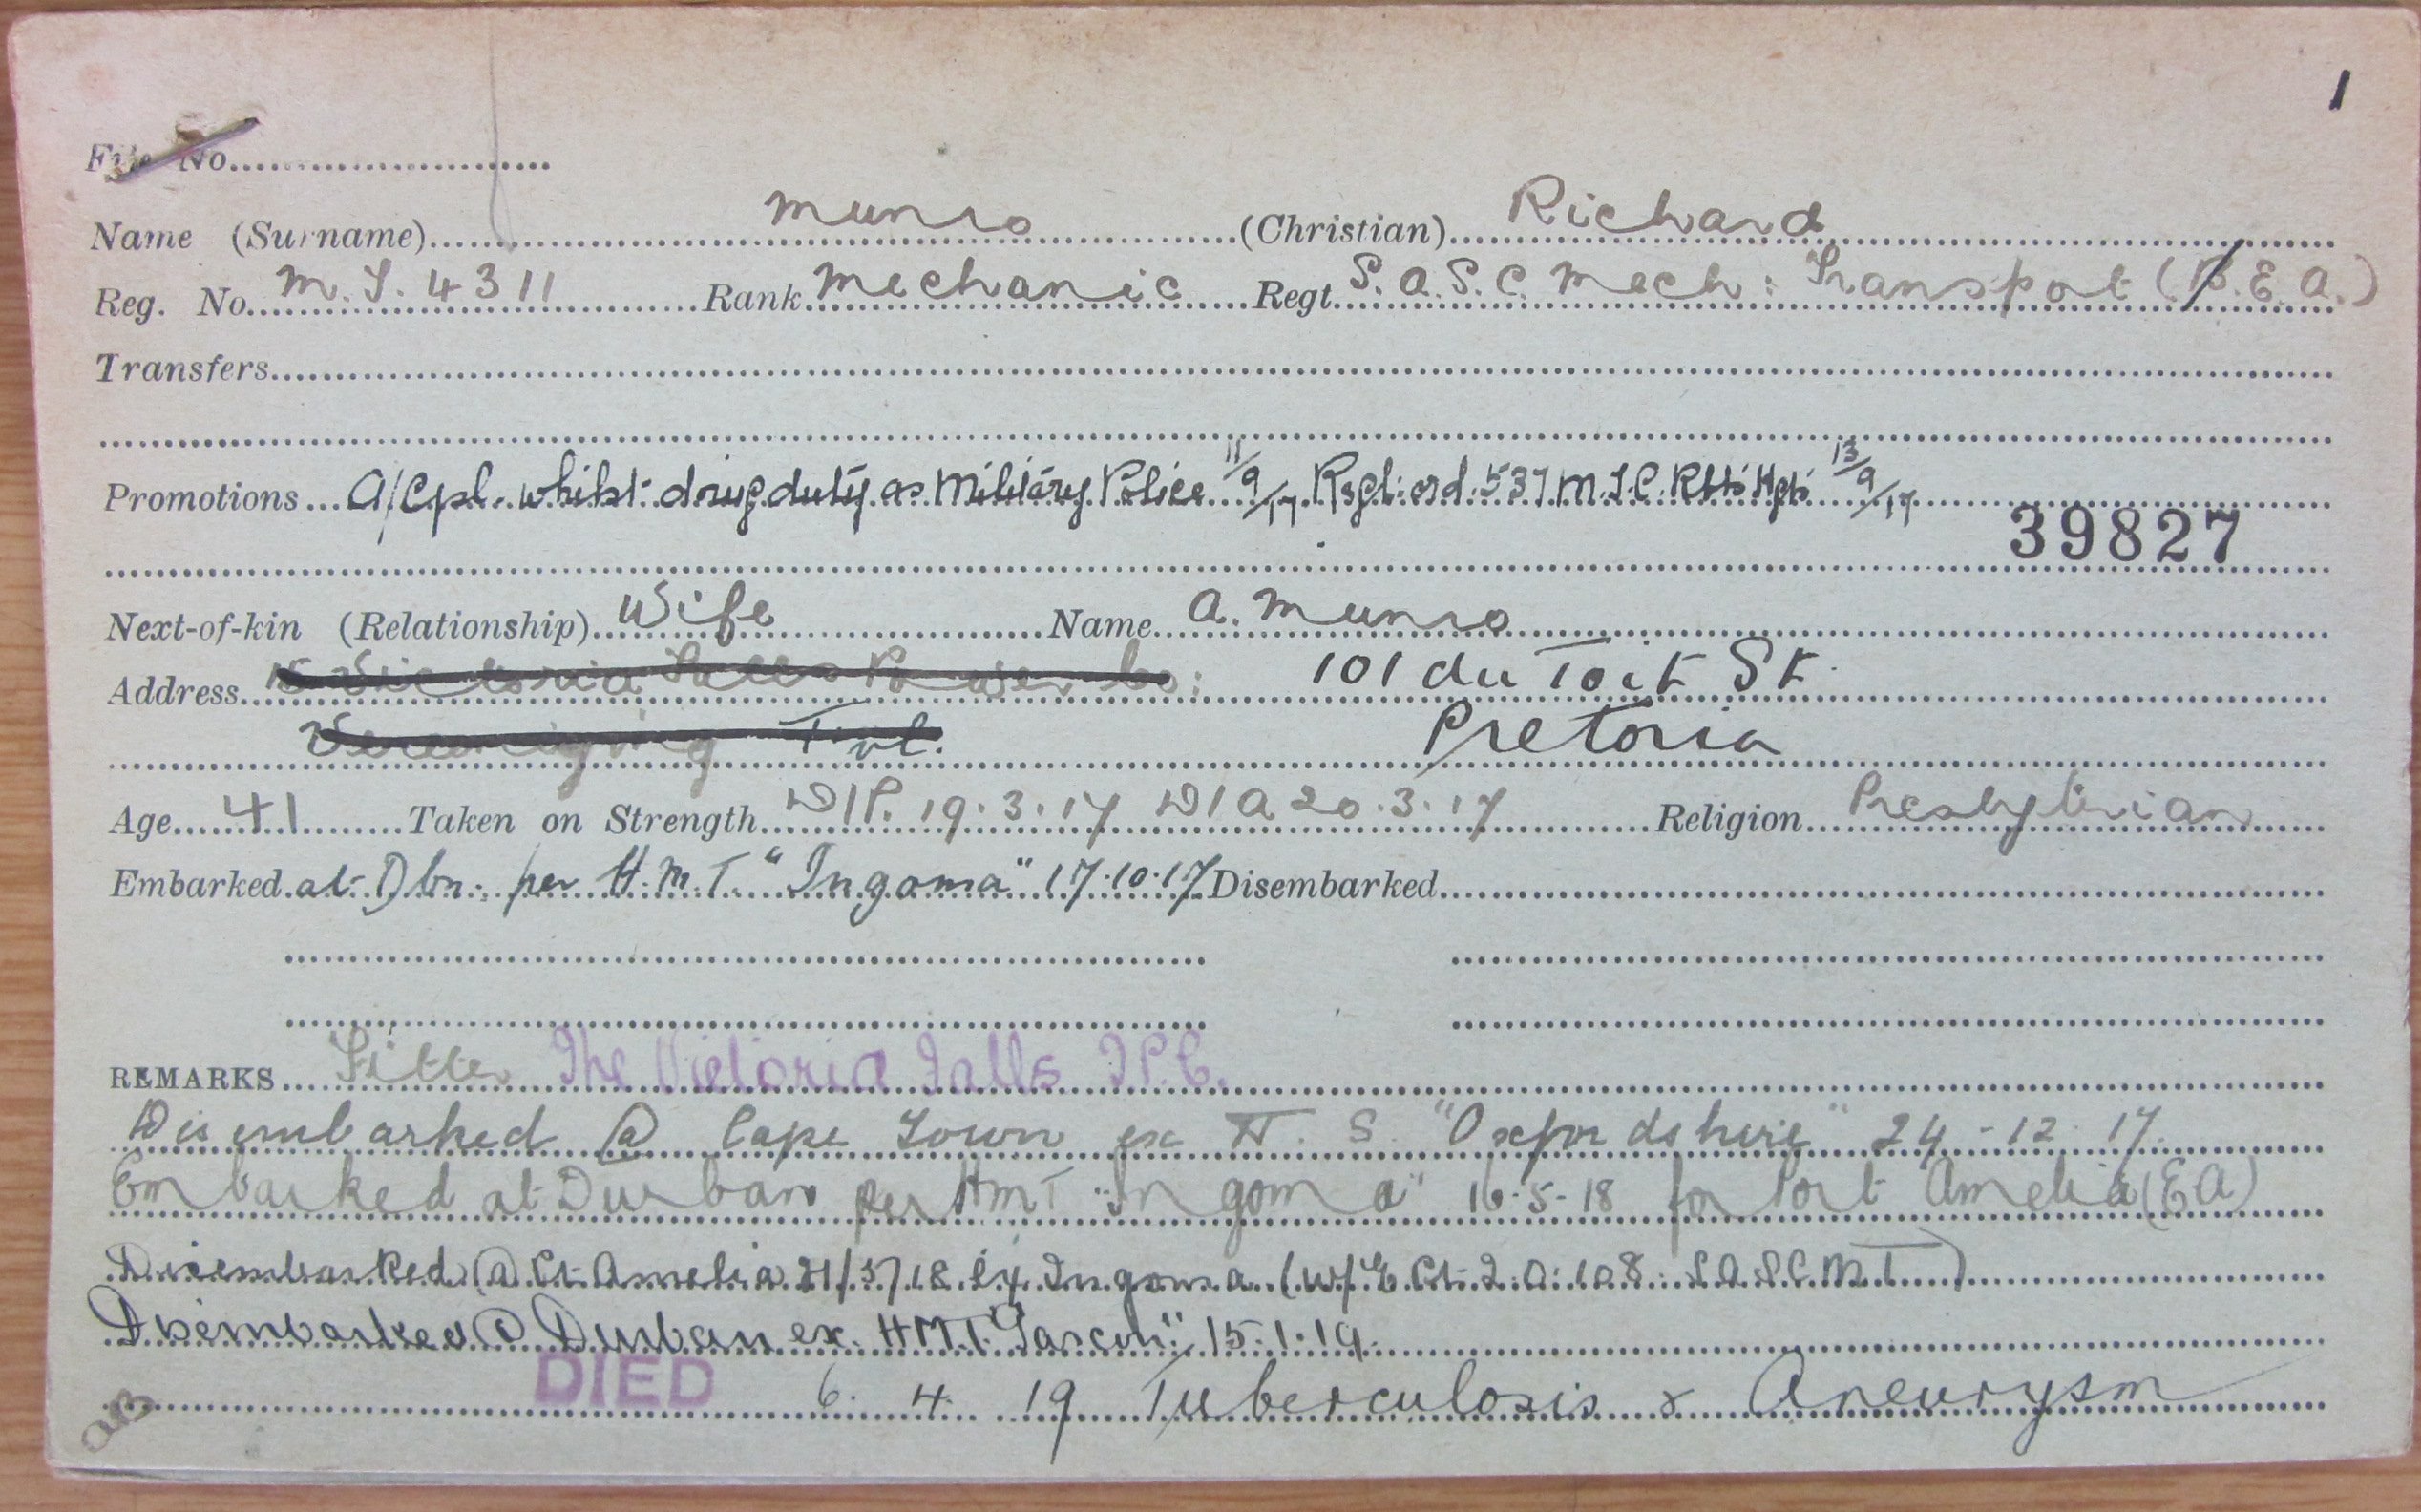 1
File No.
Name (Surname) Munro (Christian) Richard
Reg. No. M.T. 4311 Rank Mechanic Regt. S.A.S.C. Mech: Transport (B.E.A.)
Transfers
Promotions A/Cpl. whilst doing duty as Military Police 11/9/17 Regtl: ord. 537 M.T.C. 13/9/17
39827
Next-of-kin (Relationship) Wife Name A. Munro
Address Victoria Falls Power Co: 101 du Toit St.
Vereeniging Tvl. Pretoria
Age 41 Taken on Strength D/P. 19.3.17 D/A 20.3.17 Religion Presbyterian
Embarked at Dbn. per H.M.T. "Ingoma" 17.10.17 Disembarked
REMARKS Fitter The Victoria Falls T.P.C.
Disembarked @ Cape Town ex H.S. "Oxfordshire" 24-12-17.
Embarked at Durban per HMT "Ingoma" 16-5-18 for Port Amelia (E A)
Disembarked @ Pt. Amelia 21/5/18 ex Ingoma (W/E Pt. 2. O. 108. S.A.S.C.M.T.)
Disembarked @ Durban ex. HMT. "Gascon" 15.1.19.
DIED 6. 4. 19 Tuberculosis & Aneurysm